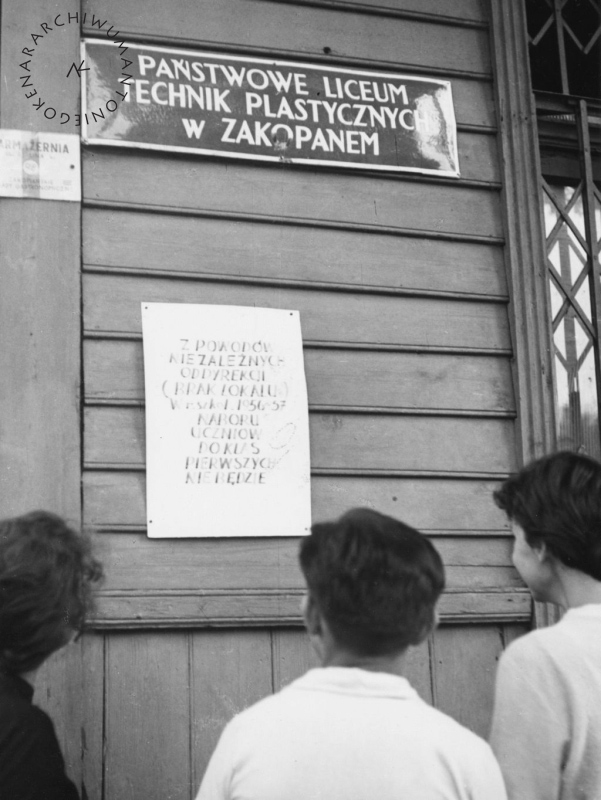 ARCHIWUM ANTONIEGO KENARA
PAŃSTWOWE LICEUM
TECHNIK PLASTYCZNYCH
W ZAKOPANEM
ARMAŻERNIA
Z POWODÓW
NIEZALEŻNYCH
OD DYREKCJI
(BRAK LOKALU)
W r. szkol. 1956-57
NABORU
UCZNIÓW
DO KLAS
PIERWSZYCH
NIE BĘDZIE